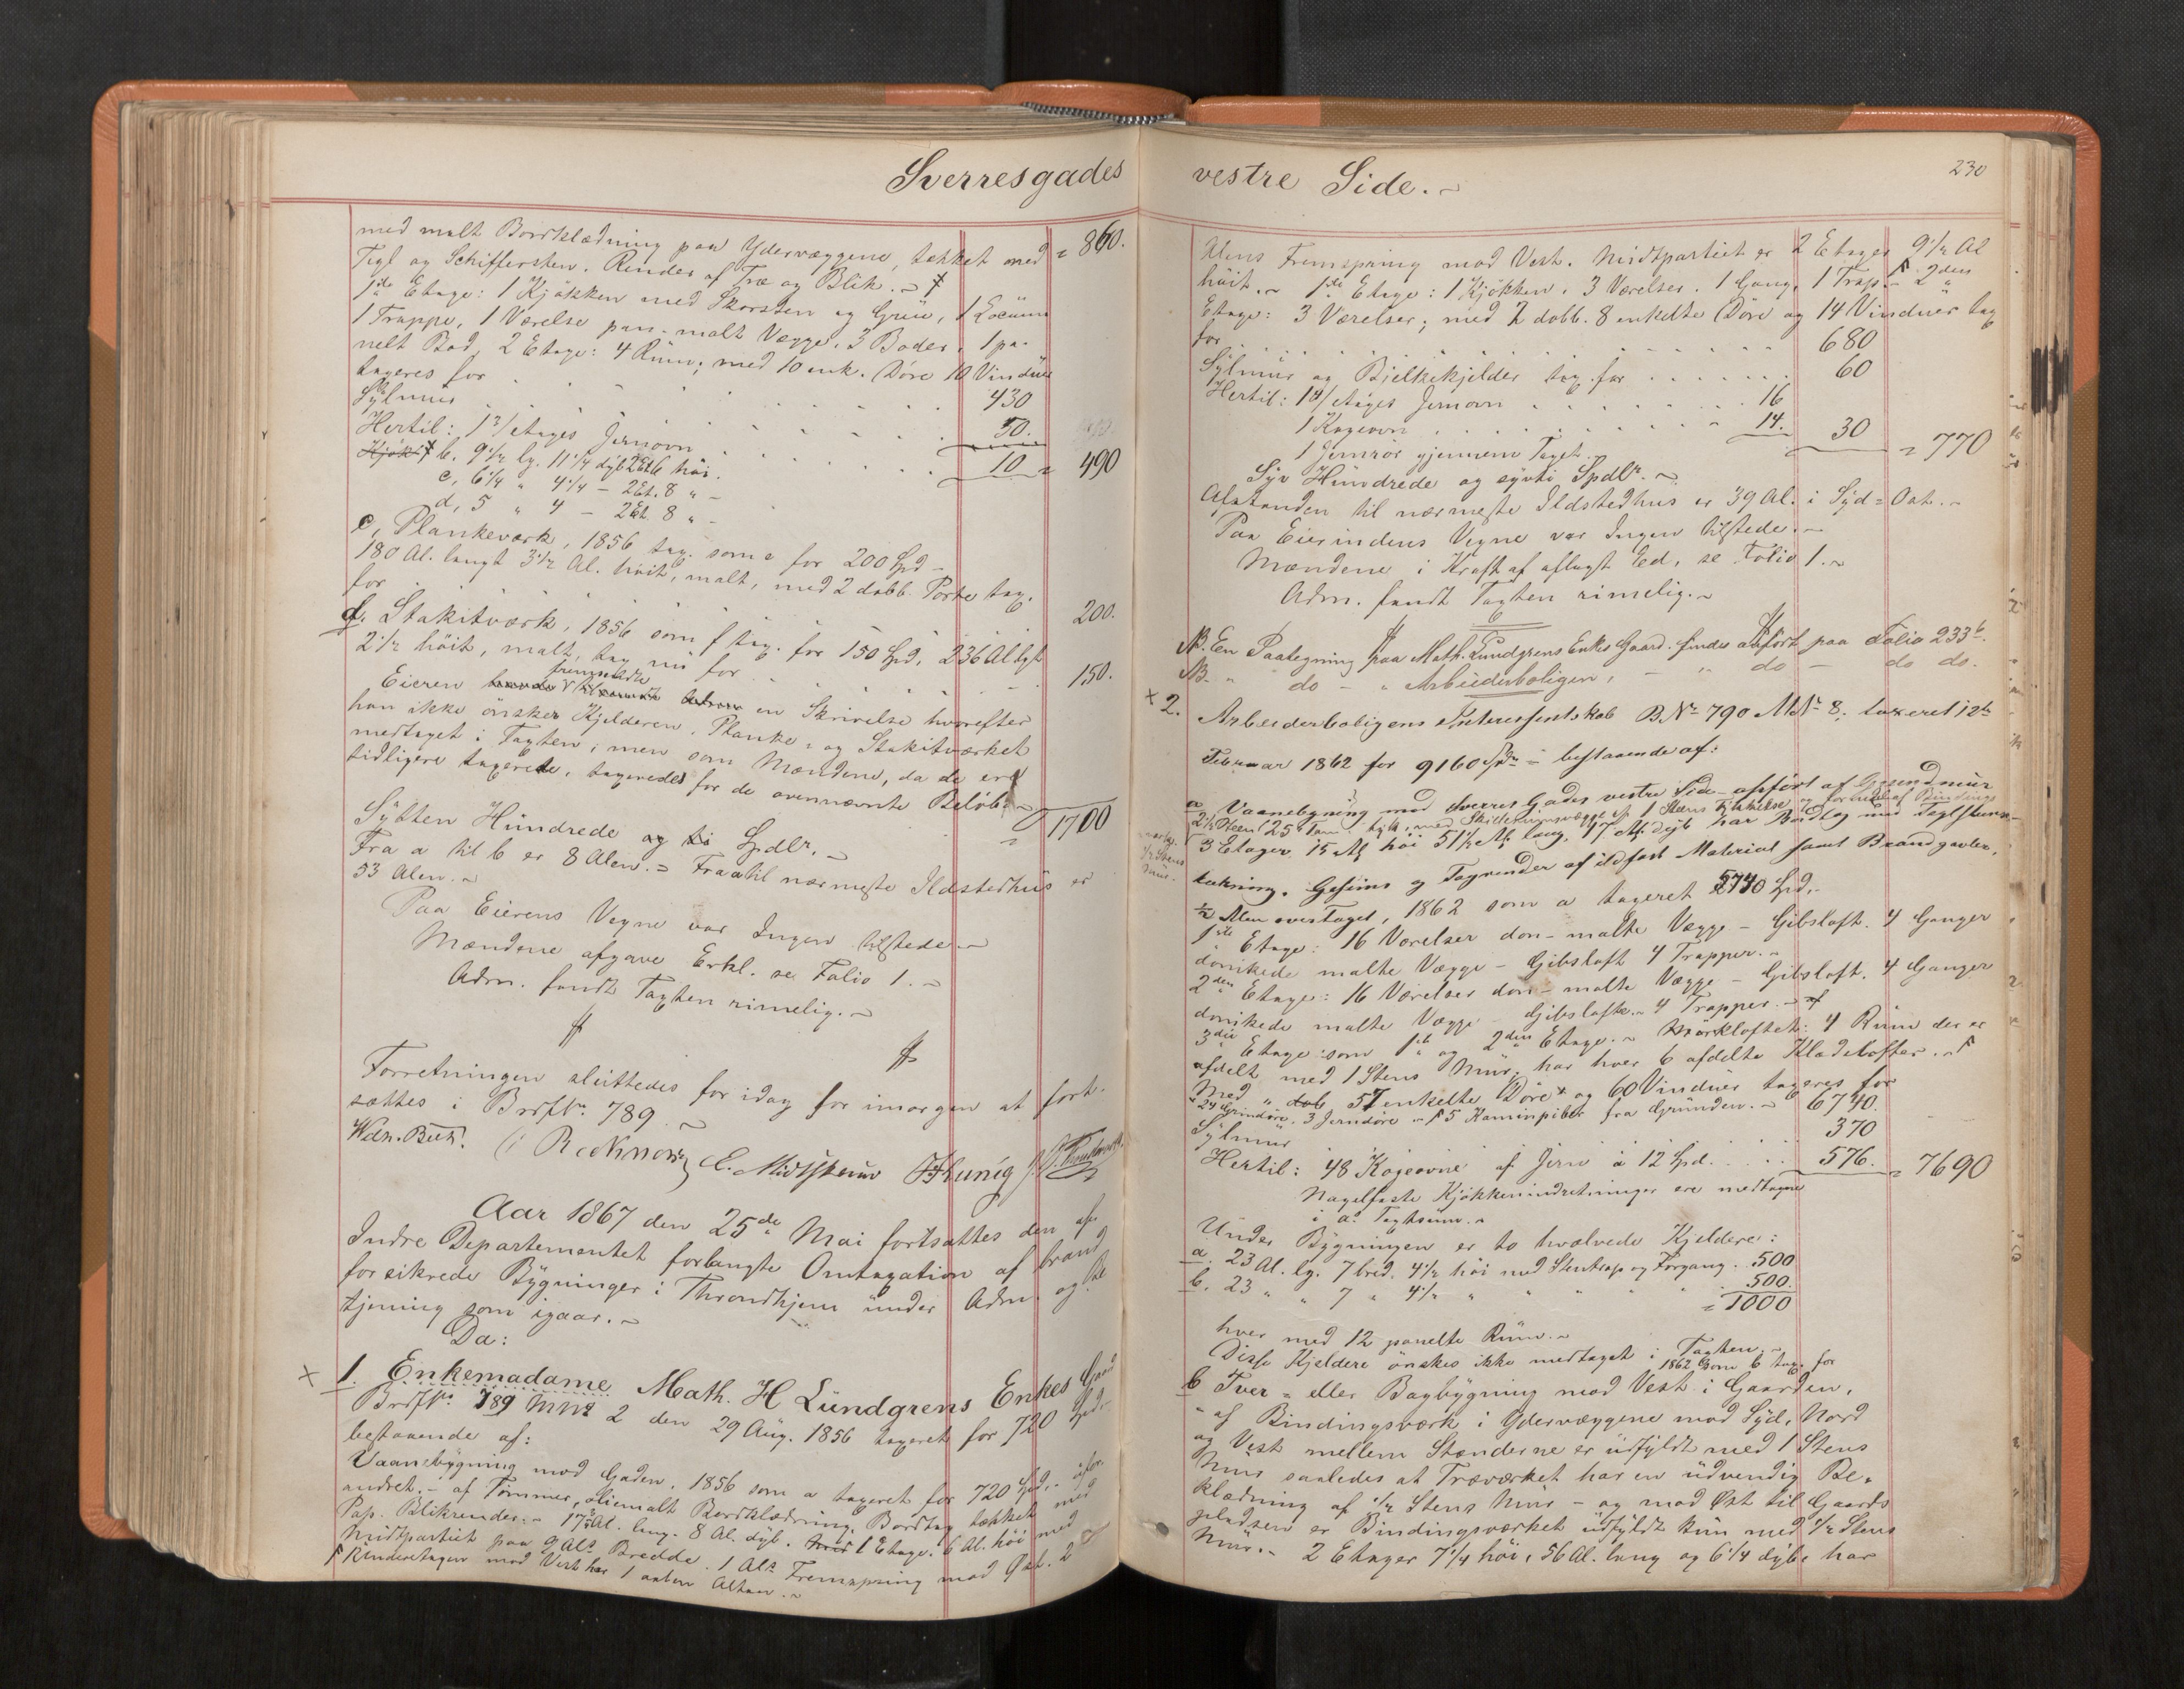 Sverresgades
med malt Bordklædning paa Ydervæggene, tækket med = 860.
Tegl og Schiffersten. Render af Træ og Blik. ~
1ste Etage: 1 Kjøkken med Skorsten og Grue, 1 Locüm
1 Trappe, 1 Værelse pan. malt Vægge. 3 Boder, 1 pa-
nelt Bod, 2 Etage: 4 Rüm; med 10 enk. Døre 10 Vindüer
taxeres for
430
Sylmür 50.
Hertil: 1 3/etages Jernovn 10 = 490
b. 9 1/2 lg. 11 1/4 dyb 2 Et. 6 høi.
c, 6 1/4 " 4 1/4 - 2 Et. 8 " -
d, 5 " 4 - 2 Et. 8 " -
e, Plankeværk, 1856 tax. som e for 200 Spd -
180 Al. langt 3 1/2 Al. høit, malt, med 2 dobb. Porte tax.
for 200.
f. Stakitværk, 1856 som f tax. for 150 Spd, 236 Al lgt
2 1/2 høit, malt, tax nü for 150.
Eieren fremsendte en Skrivelse hvorefter
han ikke ønsker Kjelderen, Planke- og Stakitværket
medtaget i Taxten; men som Mændene, da de ere
tidligere taxerede, taxeredes for de ovennævnte Beløb. ~
= 1700
Sytten Hündrede Spdlr. ~
Fra a til b er 8 Alen. = Fra a til nærmeste Ildstedhüs er
33 Alen. ~
Paa Eierens Vegne var Ingen tilstede ~
Mændene afgave Erkl. se Folio 1. ~
Adm. fandt Taxten rimelig. ~
Forretningen slüttedes for idag for imorgen at fort-
sættes i Brdf No 789. ~
Aar 1867 den 25de Mai fortsattes den af
Indre Departementet forlangte Omtaxation af brand
forsikrede Bygninger i Throndhjem ünder Adm. og Be
tjening som igaar. ~
Da:
1. Enkemadame Math. H Lündgrens Enkes Gaard
Brdf No 789 MNo 2 den 29 Aüg. 1856 taxeret for 720 Spd.
bestaaende af:
Vaanebygning mod Gaden, 1856 som a taxeret for 720 Spd. - üfor
andret. - af Tømmer, oliemalt Bordklædning, Bordtag tækket med
Pap. Blikrender. - 17 Al. lang. 8 Al. dyb. 1 Etage. 6 Al. høi med
Midtpartiet paa 9 Als Bredde. 1 Als Fremspring mod Øst. 2
mod Vest har 1 aaben Altan. ~
vestre Side. ~
230
Alens Fremspring mod Vest. Midtpartiet er 2 Etager 9 1/2 Al
høit. ~ 1ste Etage: 1 Kjøkken. 3 Værelser. 1 Gang. 1 Trap. - 2den
Etage: 3 Værelser; med 2 dobb. 8 enkelte Døre og 14 Vindüer tax
for 680
Sylmür og Bjelkekjelder tax. for 60
Hertil: 1 4/etages Jernovn 16
1 Kogeovn 14. 30
1 Jernrør gjennem Taget. = 770
Syv Hündrede og syvti Spdlr. ~
Afstanden til nærmeste Ildstedhus er 39 Al. i Syd-Ost. ~
Paa Eierindens Vegne var Ingen tilstede. ~
Mændene i Kraft af aflagt Ed, se Folio 1. ~
Adm. fandt Taxten rimelig. ~
NB. En Paategning paa Math. Lundgrens Enkes Gaard findes anført paa Folio 233b.
NB. " do - " Arbeiderboligen, - " do - do do.
2. Arbeiderboligens Interessentskab B.No 790 MNo 8; taxeret 12te
Februar 1862 for 9160 Spdr - bestaaende af:
a Vaanebygning mod Sverres Gades vestre Side - opført af Grundmür
3 Etager 15 Al. høi 51 1/2 Al. lang, 17 Al. dyb har Bordtag med Teglsteens-
tækning. Gesims og Tagrender af ildfast Material samt Brandgavler,
1/2 Alen over Taget, 1862 som a taxeret 5740 Spd. -
1ste Etage: 16 Værelser don- malte Vægge - Gibsloft. 4 Ganger
donikede malte Vægge - Gibsloft 4 Trapper. ~
2den Etage: 16 Værelser don- malte Vægge - Gibsloft. 4 Ganger
donikede malte Vægge - Gibslofte. ~ 4 Trapper. -
3die Etage som 1ste og 2den Etage. ~ Mørkloftet: 4 Rüm der er
afdelt med 1 Stens Mür; har hver 6 afdelte Klædelofter. ~
Med 57 enkelte Døre og 60 Vindüer taxeres for
24 Grinddøre, 3 Jerndøre - 5 Kaminpiber fra Gründen. ~ 6740.
Sylmür 370
Hertil: 48 Kogeovne af Jern à 12 Spd. 576. = 7690
Nagelfaste Kjøkkenindretninger ere medtagne
i a's Taxtsum. ~
Under Bygningen er to hvælvede Kjeldere:
a. 23 Al. lg. 7 bred. 4 1/2 høi med Stentrap og Forgang. 500
b. 23 " " 7 " 4 1/2 " " " " " 500.
= 1000
hver med 12 panelte Rüm. ~
Disse Kjeldere ønskes ikke medtaget i Taxten. ~
1862 som b tax. for
b Tver- eller Bagbygning mod Vest i Gaarden,
- af Bindingsværk i Ydervæggene mod Syd, Nord
og Vest mellem Stenderne er üdfyldt med 1 Stens
Mür saaledes at Træværket har en üdvendig Be-
klædning af 1/2 Stens Mür - og mod Øst til Gaards
pladsen er Bindingsværket üdfyldt kün med 1/2 Stens
Mür. ~ 2 Etager 7 1/4 høi, 56 Al. lang og 6 1/4 dyb, har